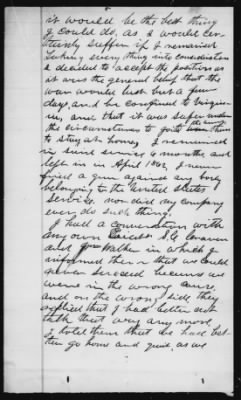 it would be the best thing
I could do, as I would cer-
tainly suffer if I remained
Taking everything into consideration
I decided to accept the position as
it was the general belief that the
war would last but a few
days, and be confined to Virgin-
ia, and that it was safer under
the circumstances to go than
to stay at home, I remained
in said service 6 months and
left in in April 1862, I never
fired a gun against any body
belonging to the United States
Service, nor did my company
ever do such thing,
I had a conversation with
my own
and Walker in which I
informed them that we could
never succeed because we
were in the wrong cause
and on the wrong side, they
replied that I had better not
talk that way any more,
I told them that we had bet-
ter go home and quit, as we